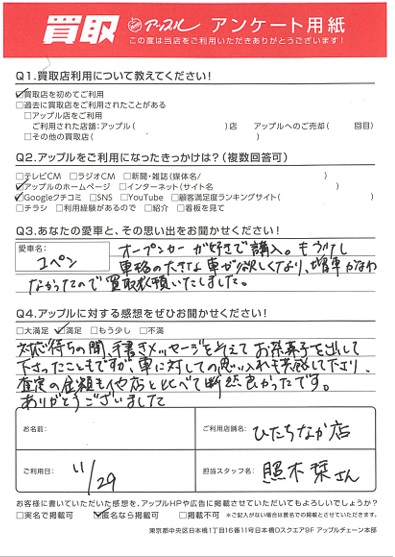 買取 アップル アンケート用紙
この度は当店をご利用いただきありがとうございます！
Q1.買取店利用について教えてください！
☑買取店を初めてご利用
□過去に買取店をご利用されたことがある
□アップル店をご利用
ご利用された店舗：アップル( )店 アップルへのご売却( 回目)
□その他の買取店( )
Q2.アップルをご利用になったきっかけは？(複数回答可)
□テレビCM □ラジオCM □新聞・雑誌(媒体名/ )
☑アップルのホームページ □インターネット(サイト名 )
☑Googleクチコミ □SNS □YouTube □顧客満足度ランキングサイト( )
□チラシ □利用経験があるので □紹介 □看板を見て
Q3.あなたの愛車と、その思い出をお聞かせください！
愛車名：
コペン
オープンカーが好きで購入。もう少し
車格の大きな車が欲しくなり、増車かなわ
なかったので買取依頼いたしました。
Q4.アップルに対する感想をぜひお聞かせください！
□大満足 ☑満足 □もう少し □不満
対応待ちの間、手書きメッセージを与えてお茶菓子を出して
下さったこともですが、車に対しての思い入れも共感して下さり、
査定の金額も他店と比べて断然良かったです。
ありがとうございました
お名前：
ご利用店舗名：
ひたちなか店
ご利用日：
11/29
担当スタッフ名：
照木栞さん
お客様に書いていただいた感想を、アップルHPや広告に掲載させていただいてもよろしいでしょうか？
□実名で掲載可 ☑匿名なら掲載可 □掲載不可 ※ご記入がない場合は匿名での掲載とさせていただきます。
東京都中央区日本橋1丁目16番11号日本橋Dスクエア9F アップルチェーン本部